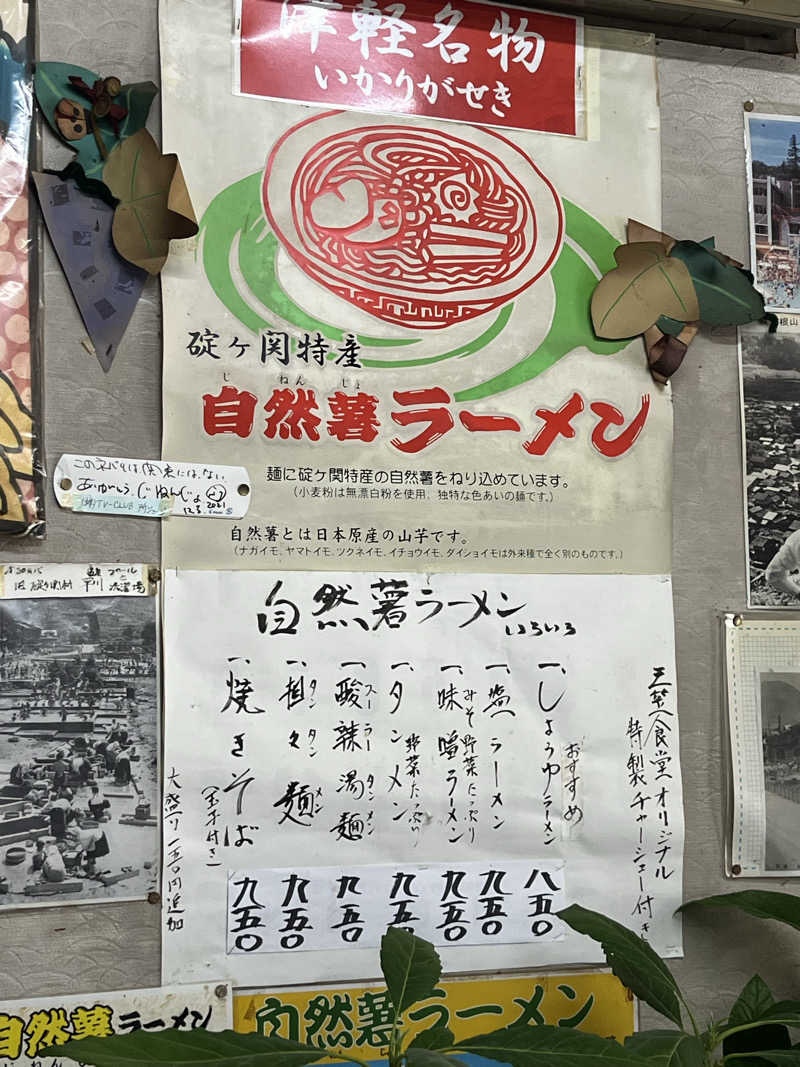 津軽名物
いかりがせき
碇ヶ関特産
じ ねん じょ
自然薯ラーメン
麺に碇ヶ関特産の自然薯をねり込めています。
（小麦粉は無漂白粉を使用、独特な色あいの麺です。）
自然薯とは日本原産の山芋です。
（ナガイモ、ヤマトイモ、ツクネイモ、イチョウイモ、ダイショイモは外来種で全く別のものです。）
このネバりは関東にはない
ありがとう、じねんじょ
(株)TV-CLUB
2021
12.3
自然薯ラーメン
いろいろ
三笠食堂オリジナル
特製チャーシュー付き
おすすめ
一、しょうゆラーメン 八五〇
一、塩ラーメン 九五〇
みそ野菜たっぷり
一、味噌ラーメン 九五〇
一、タンメン 九五〇
野菜たっぷり
スーラータンメン
一、酸辣湯麺 九五〇
タンタンメン
一、担々麺 九五〇
一、焼きそば 九五〇
（玉子付き）
大盛り一五〇円追加
自然薯ラーメン
自然薯ラーメン